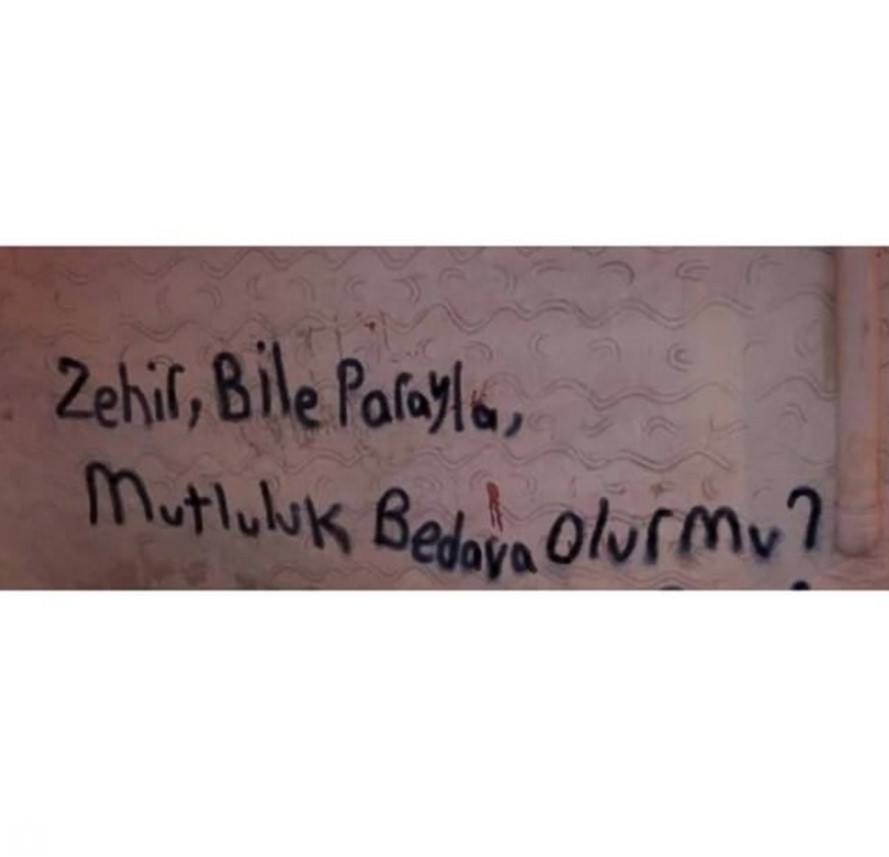 Zehir, Bile Parayla,
Mutluluk Bedava Olur mu?